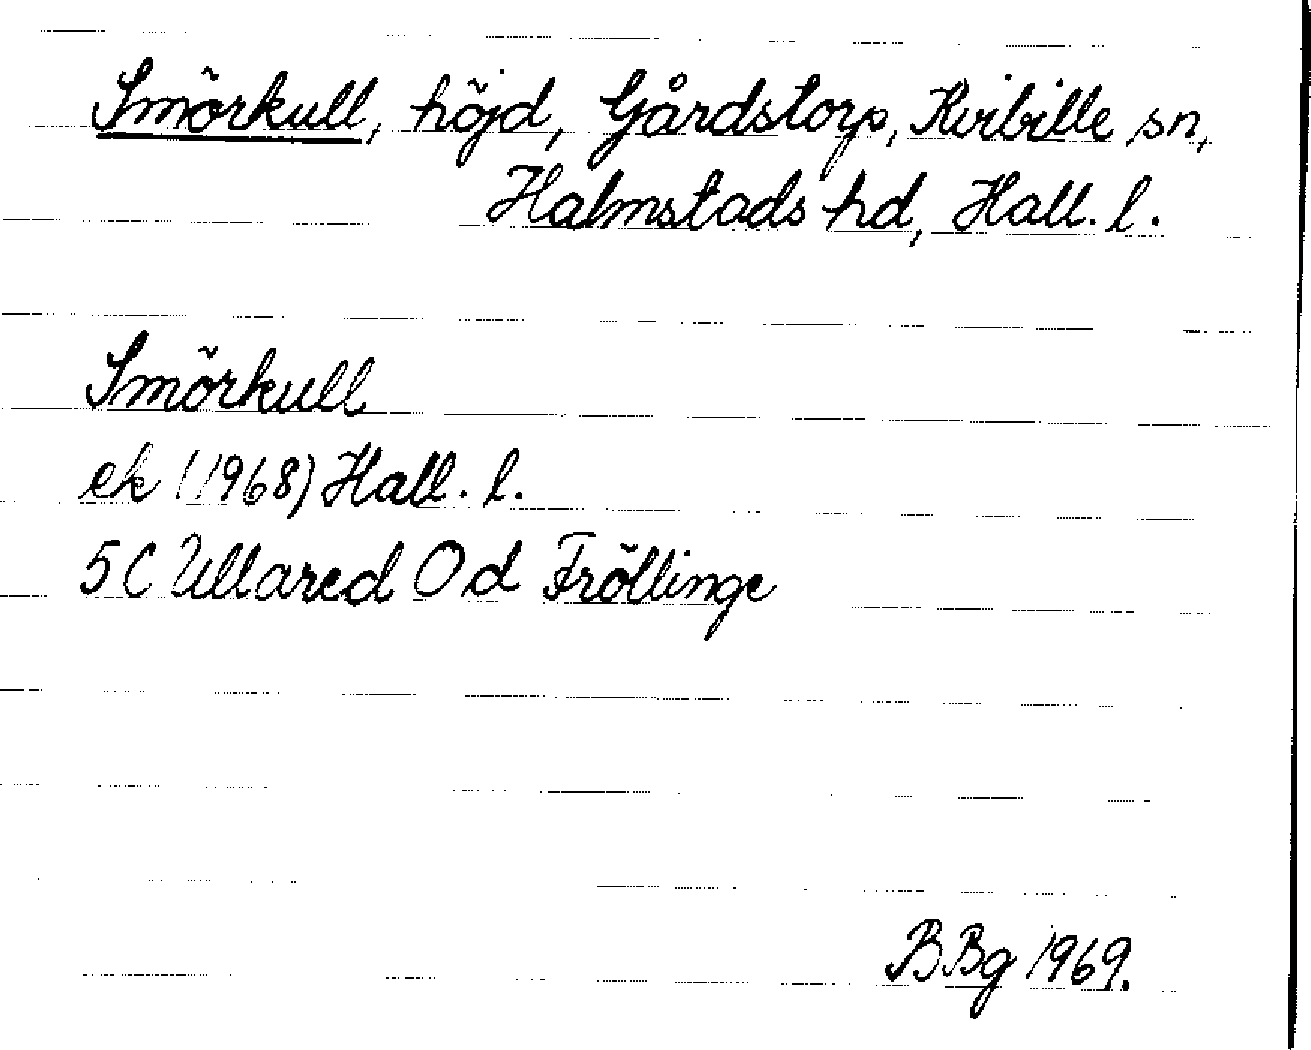 Smörkull, höjd, Gårdstorp, Kvibille sn,
Halmstads hd, Hall. l.
Smörkull
ek (1968) Hall. l.
5C Ullared Od Fröllinge
BBg 1969.